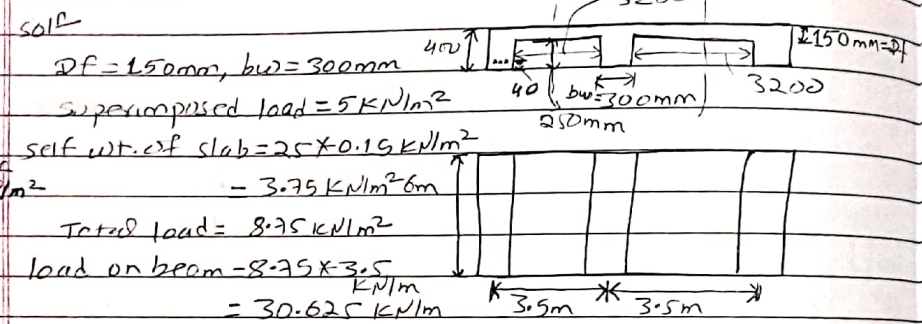 solⁿ
Df = 150mm, bw = 300mm
superimposed load = 5 KN/m²
self wt. of slab = 25 × 0.15 KN/m²
= 3.75 KN/m²
Total load = 8.75 KN/m²
load on beam - 8.75 × 3.5 KN/m
= 30.625 KN/m
400
150mm = Df
40
bw = 300mm
3200
250mm
6m
3.5m
3.5m